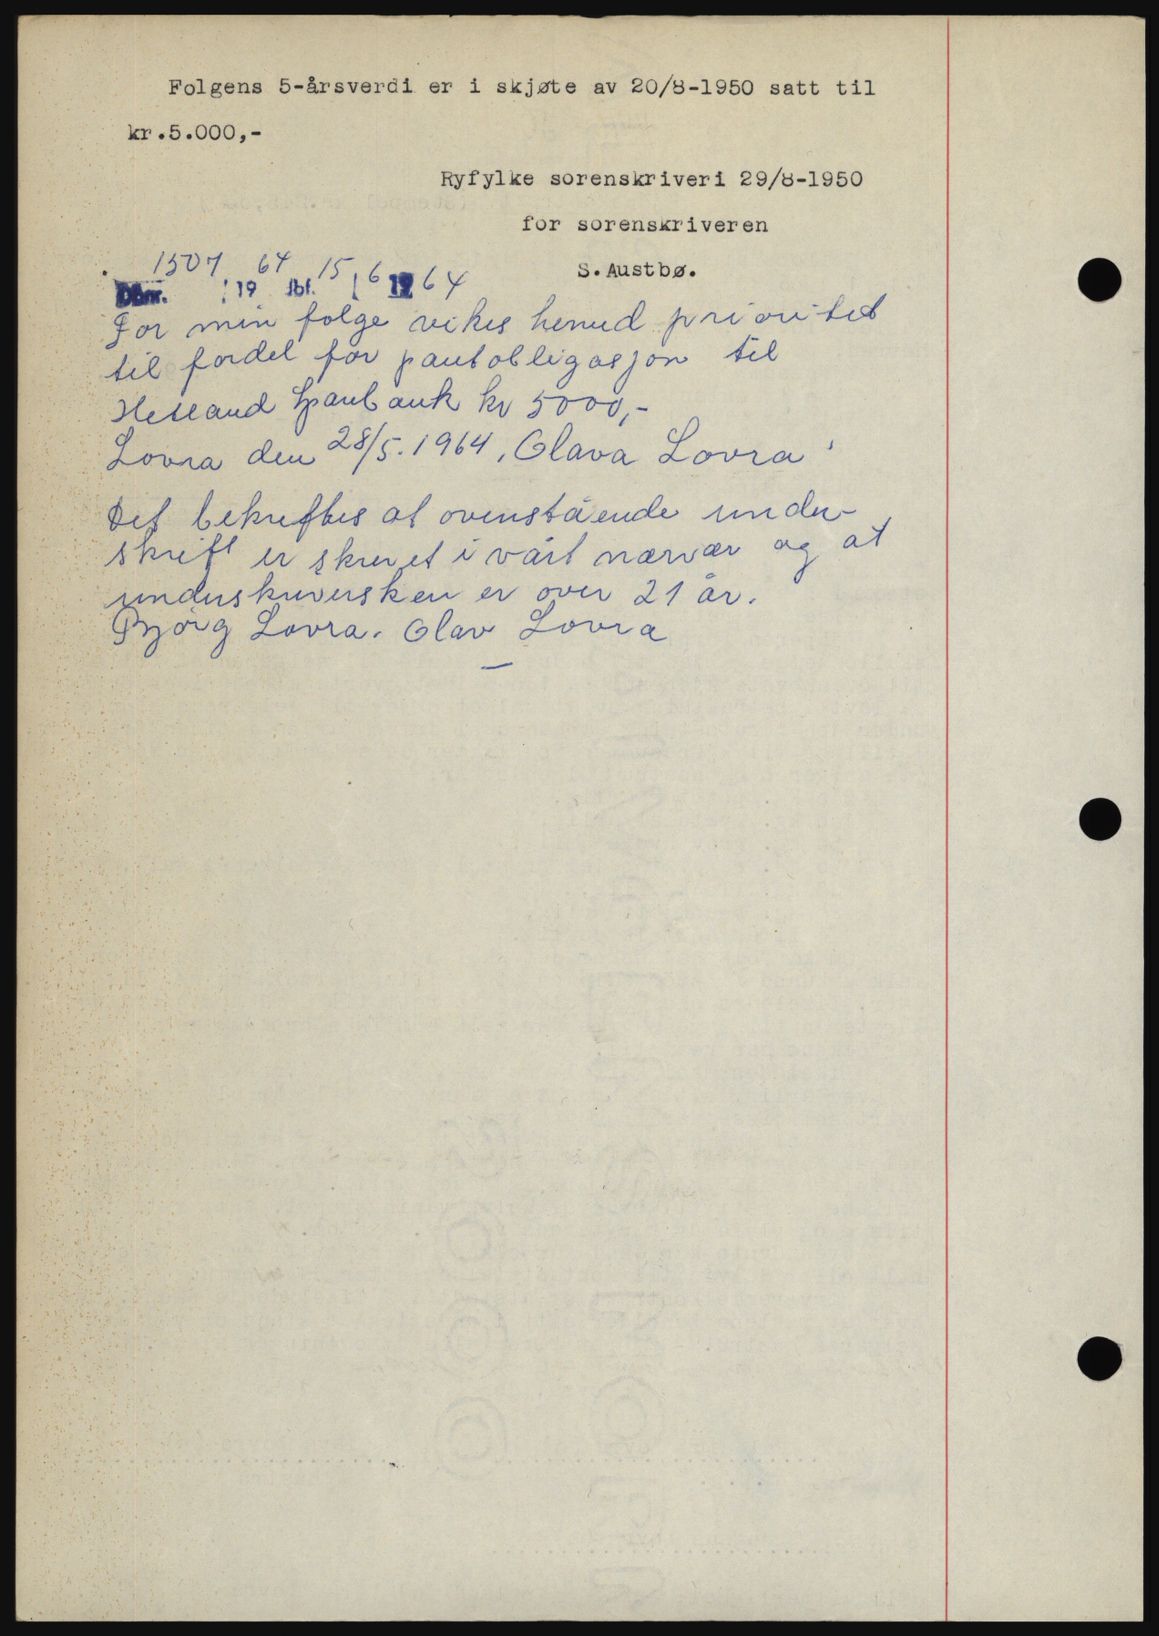 Folgens 5-årsverdi er i skjøte av 20/8-1950 satt til
kr.5.000,-
Ryfylke sorenskriveri 29/8-1950
for sorenskriveren
S. Austbø.
Dbnr. 1507 1964 tbf. 15/6 1964
For min folge vikes herved prioritet
til fordel for pantobligasjon til
Hetland Sparbank kr 5000,-
Lovra den 28/5.1964, Olava Lovra
Det bekreftes at ovenstående under-
skrift er skrevet i vårt nærvær og at
underskriversken er over 21 år.
Bjørg Lovra. Olav Lovra